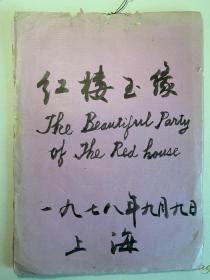 红楼玉缘
The Beautiful Party
of The Red house
一九七八年九月九日
上海